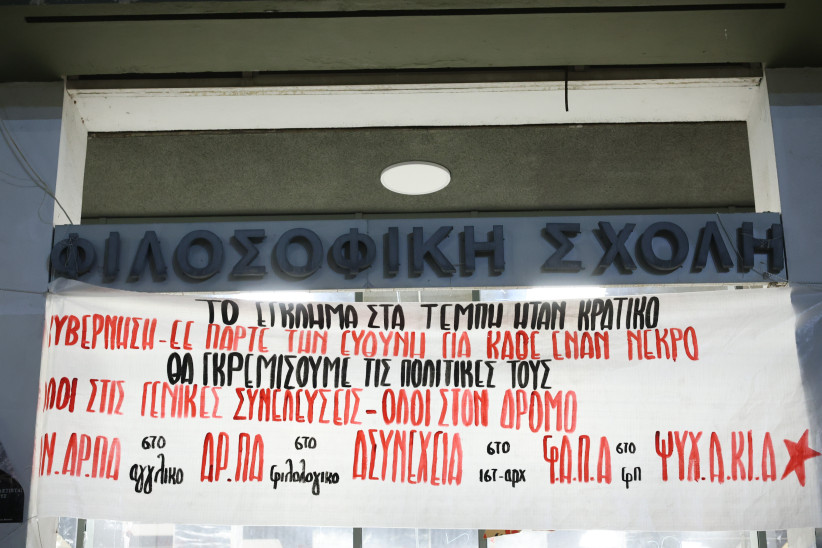 ΦΙΛΟΣΟΦΙΚΗ ΣΧΟΛΗ
ΤΟ ΕΓΚΛΗΜΑ ΣΤΑ ΤΕΜΠΗ ΗΤΑΝ ΚΡΑΤΙΚΟ
ΚΥΒΕΡΝΗΣΗ-ΕΕ ΠΑΡΤΕ ΤΗΝ ΕΥΘΥΝΗ ΓΙΑ ΚΑΘΕ ΕΝΑΝ ΝΕΚΡΟ
ΘΑ ΓΚΡΕΜΙΣΟΥΜΕ ΤΙΣ ΠΟΛΙΤΙΚΕΣ ΤΟΥΣ
ΟΛΟΙ ΣΤΙΣ ΓΕΝΙΚΕΣ ΣΥΝΕΛΕΥΣΕΙΣ-ΟΛΟΙ ΣΤΟΝ ΔΡΟΜΟ
ΑΝ.ΑΡ.ΠΑ στο αγγλικο ΑΡ.ΠΑ στο φιλολογικο ΑΣΥΝΕΧΕΙΑ στο ιστ-αρχ Φ.Α.Π.Α στο φπ ΨΥΧ.Α.ΚΙ.Α